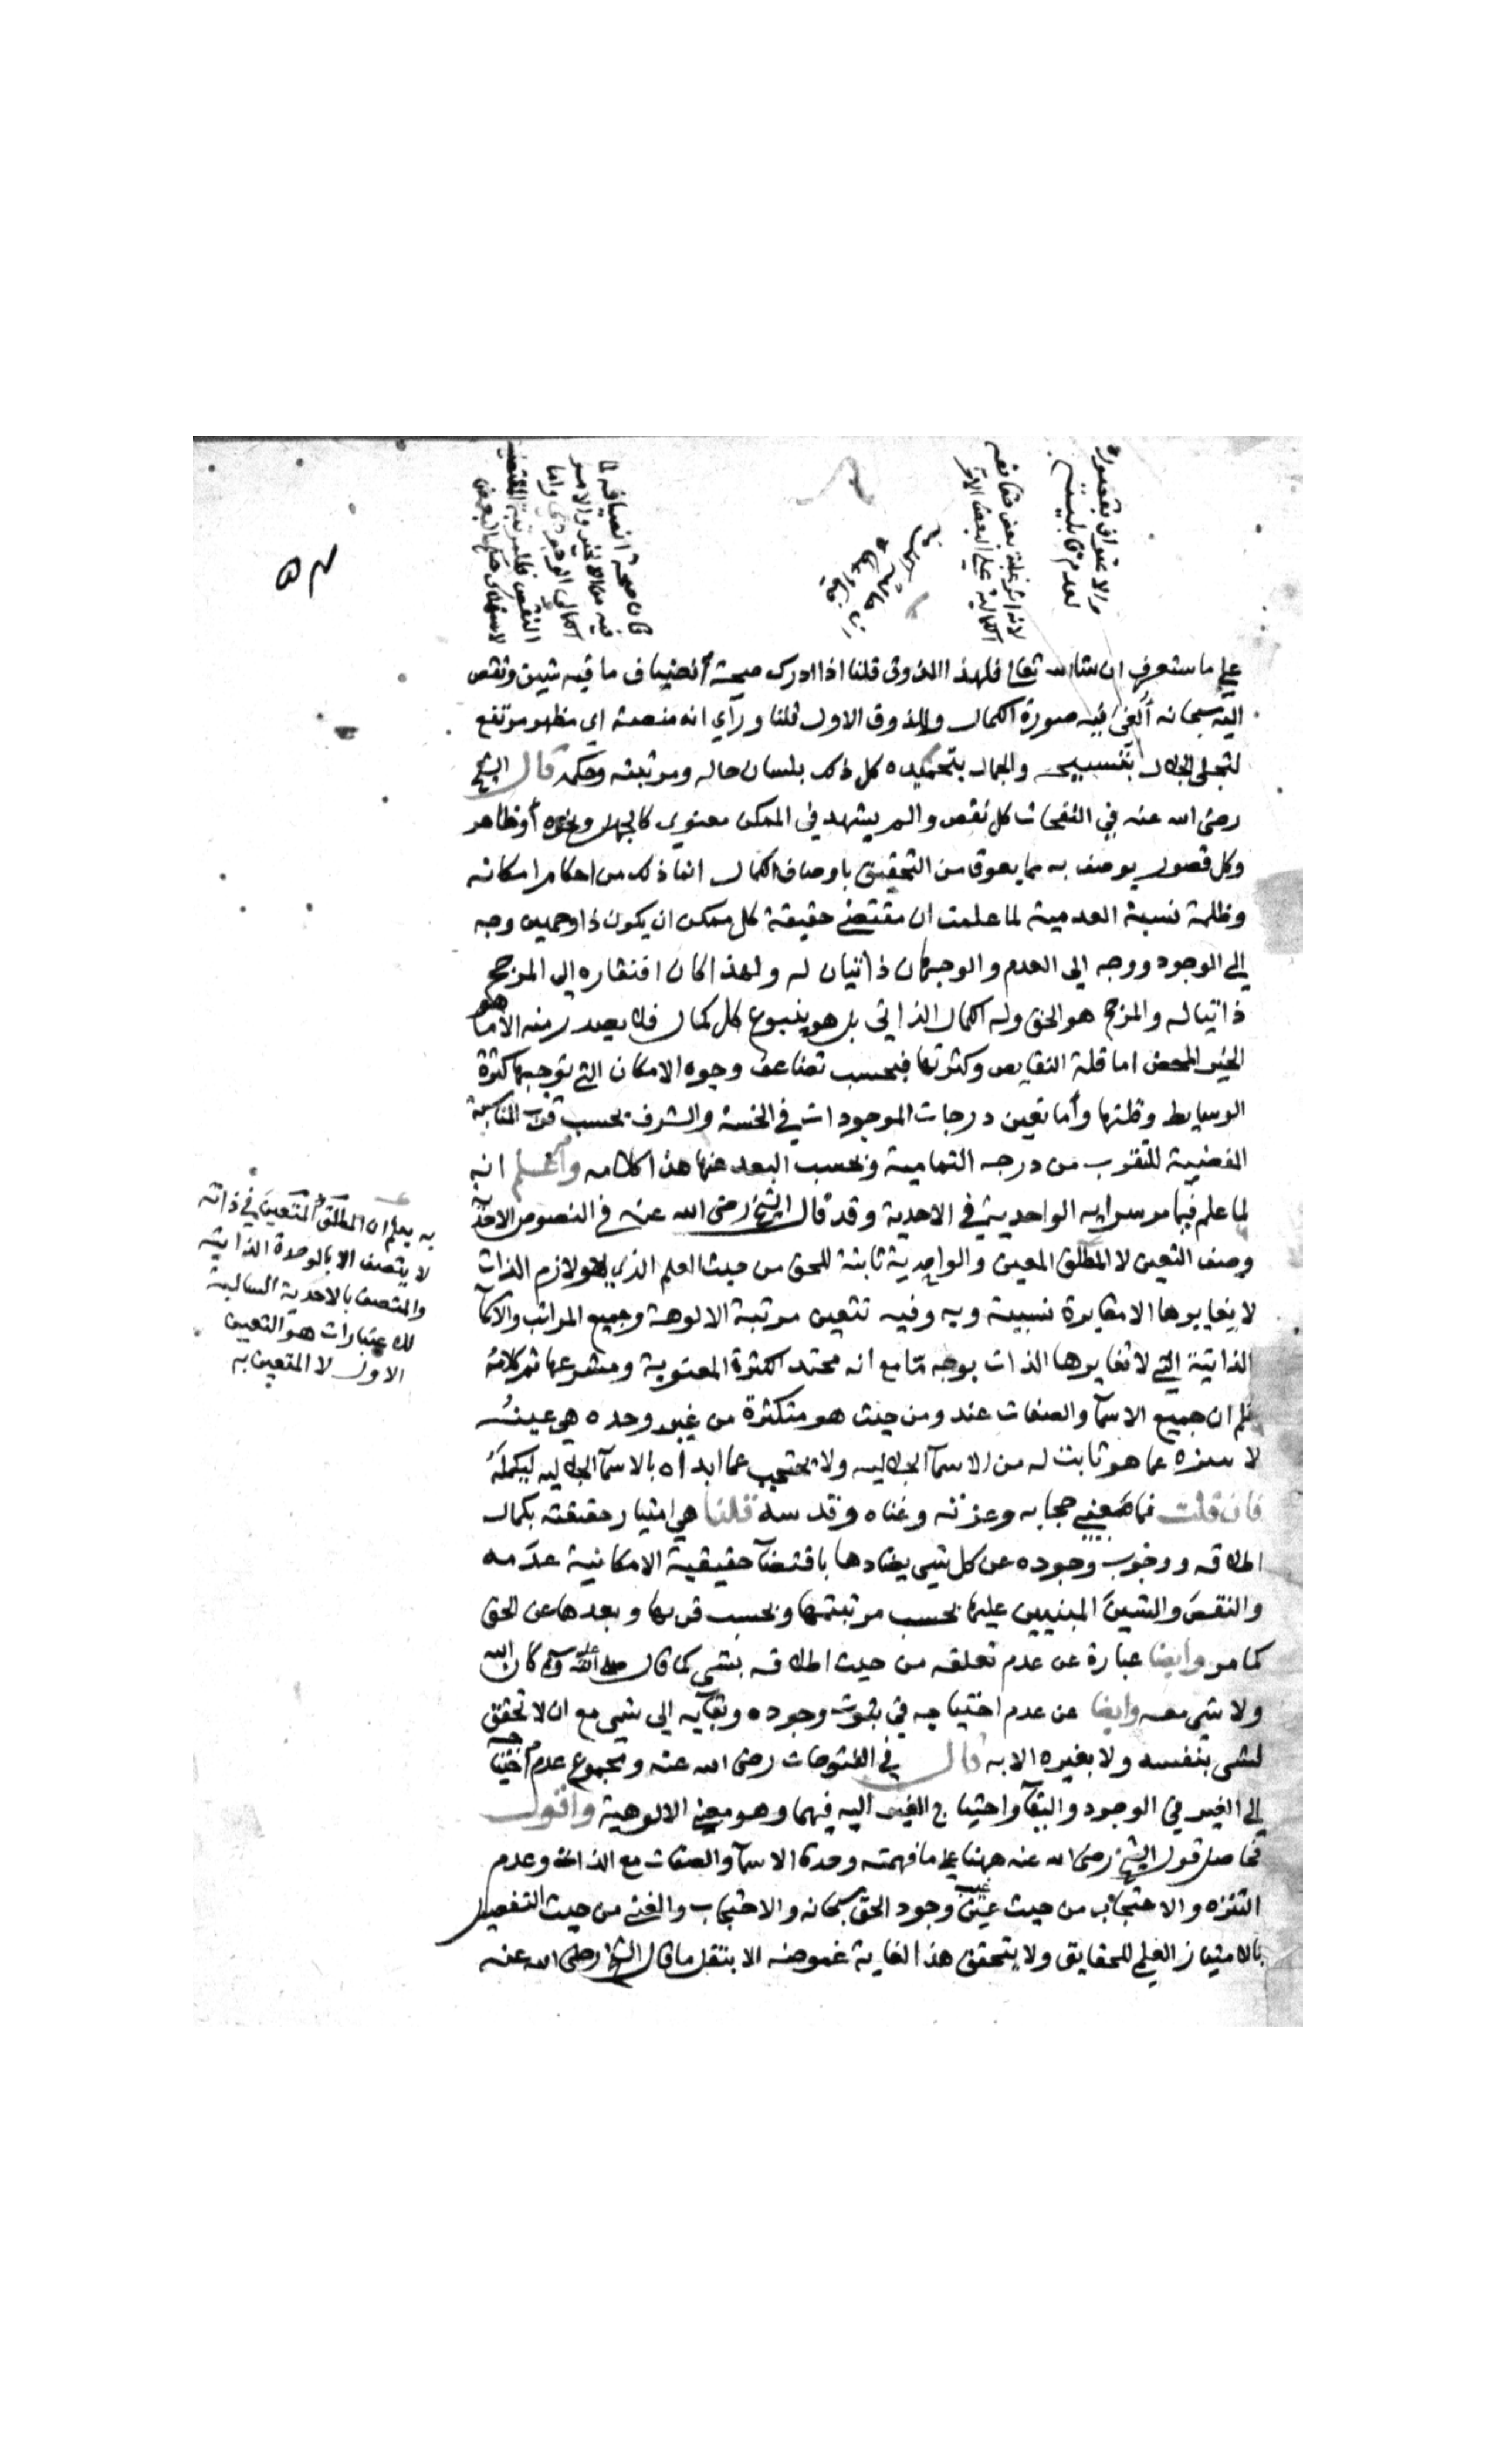 والاعتراف بقصوره
لعدم قابليته
لانه اثر غلبة بعض حقائقه
الكمالية على البعض الاخر
كان صحة انضيافه لما
فيه من الخير والامر
الكمالي الوجودي واما
النقص فللمرتبة المقتضية
لاستهلاك حكم البعض
على ما ستعرفه ان شاء الله تعالى فلهذا الذوق قلنا اذا ادرك صحة انضياف ما فيه شين ونقص
اليه سبحانه ألفى فيه صورة الكمال وللذوق الاول قلنا ورآي انه منصة اي مظهر مرتفع
لتجلى الجلال بتنسبيحه والجمال بتحميده كل ذلك بلسان حاله ومرتبته وحكمه قال الشيخ
رضى الله عنه في النفحات كل نقص والم يشهد في الممكن معنوي كالجهل ونحوه أوظاهر
وكل قصور يوصف به مما يعوق من التحقيق باوصاف الكمال انما ذلك من احكام امكانه
وظلمة نسبة العدمية لما علمت ان مقتضى حقيقة كل ممكن ان يكون ذا وجهين وجه
إلى الوجود ووجه الى العدم والوجهان ذاتيان له ولهذا كان افتقاره الى المرجح
ذاتيا له والمرجح هو الحق وله الكمال الذاتى بل هو ينبوع كل كمال فلا يصدر منه الا ما هو
الخير المحض اما قلة النقايص وكثرتها فبحسب تضاعف وجوه الامكان التي توجبها كثرة
الوسايط وقلتها وأما تعين درجات الموجودات في الخسة والشرف بحسب قوة المناسبة
المقضية للتقرب من درجه التمامية وبحسب البعد عنها هذا كلامه وأعلم انه
لما علم فيما مر سراية الواحدية في الاحدية وقد قال الشيخ رضى الله عنه في النصوص الاحدية
وصف التعين لا المطلق المعين والواحدية ثابتة للحق من حيث العلم الذي هو لازم الذات
لا يغايرها الا مغايرة نسبية وبه وفيه تتعين مرتبة الالوهة وجميع المراتب والاسمآ
الذاتية التي لا تغايرها الذات بوجه مّا مع انه محتد الكثرة المعنوية ومشرعها تم كلامه
علم ان جميع الاسمآ والصفات عنده ومن حيث هو متكثرة من غير وحده هي عينهُ
لا يتنزه عما هو ثابت له من الاسمآ الجلاليه ولا يحتجب عما ابداه بالاسمآ الجلاليه ليكملهُ
فان قلت فما معنى حجابه وعزته وغناه وقدسه قلنا هي امتياز حقيقته بكمال
اطلاقه ووجوب وجوده عن كل شيى يضادها باقتضآ حقيقية الامكانية عدمه
والنقص والشين المبنيين عليها بحسب مرتبتها وبحسب قربها وبعدها عن الحق
كما مر وايضا عبارة عن عدم تعلقه من حيث اطلاقه بشى كما قال صلى الله عليه وسلم كان الله
ولا شى معه وايضا عن عدم احتياجه في ثبوت وجوده وبقآيه الى شيى مع ان لا تحقق
لشى بنفسه ولا بغيره الا به قال في الفتوحات رضى الله عنه ومجموع عدم احتياجه
إلى الغير في الوجود والبقآ واحتياج الغير اليه فيهما وهو معنى الالوهية واقول
فحاصل قول الشيخ رضى الله عنه ههنا على ما فهمته وحدة الاسمآ والصفات مع الذات وعدم
التنزه والاحتجاب من حيث عين وجود الحق سبحانه والاحتجاب والغنى من حيث التفصيل
بالامتياز العلمي للحقايق ولا يتحقق هذا لغاية غموضه الا بنقل ما قال الشيخ رضى الله عنه
به يعلم ان المطلق المتعين في ذاته
لا يتصف الا بالوحدة الذاتية
والمتصف بالاحدية السالبة
للاعتبارات هو التعين
الاول لا المتعين به